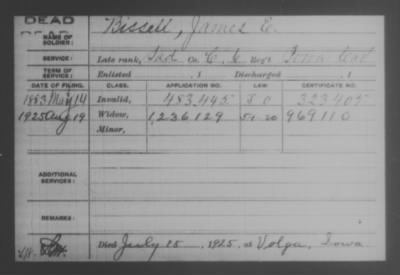 DEAD
DEAD
NAME OF SOLDIER: Bissell, James E.
SERVICE: Late rank, Co. C, 6 Reg't Iowa Cav
TERM OF SERVICE: Enlisted , 1 Discharged , 1
DATE OF FILING. CLASS. APPLICATION NO. LAW. CERTIFICATE NO.
1883 May 14 Invalid, 483,445 323,405
1925 Aug 19 Widow, 1,236,129 969110
Minor,
ADDITIONAL SERVICES:
REMARKS:
Died July 15, 1925, at Volga, Iowa